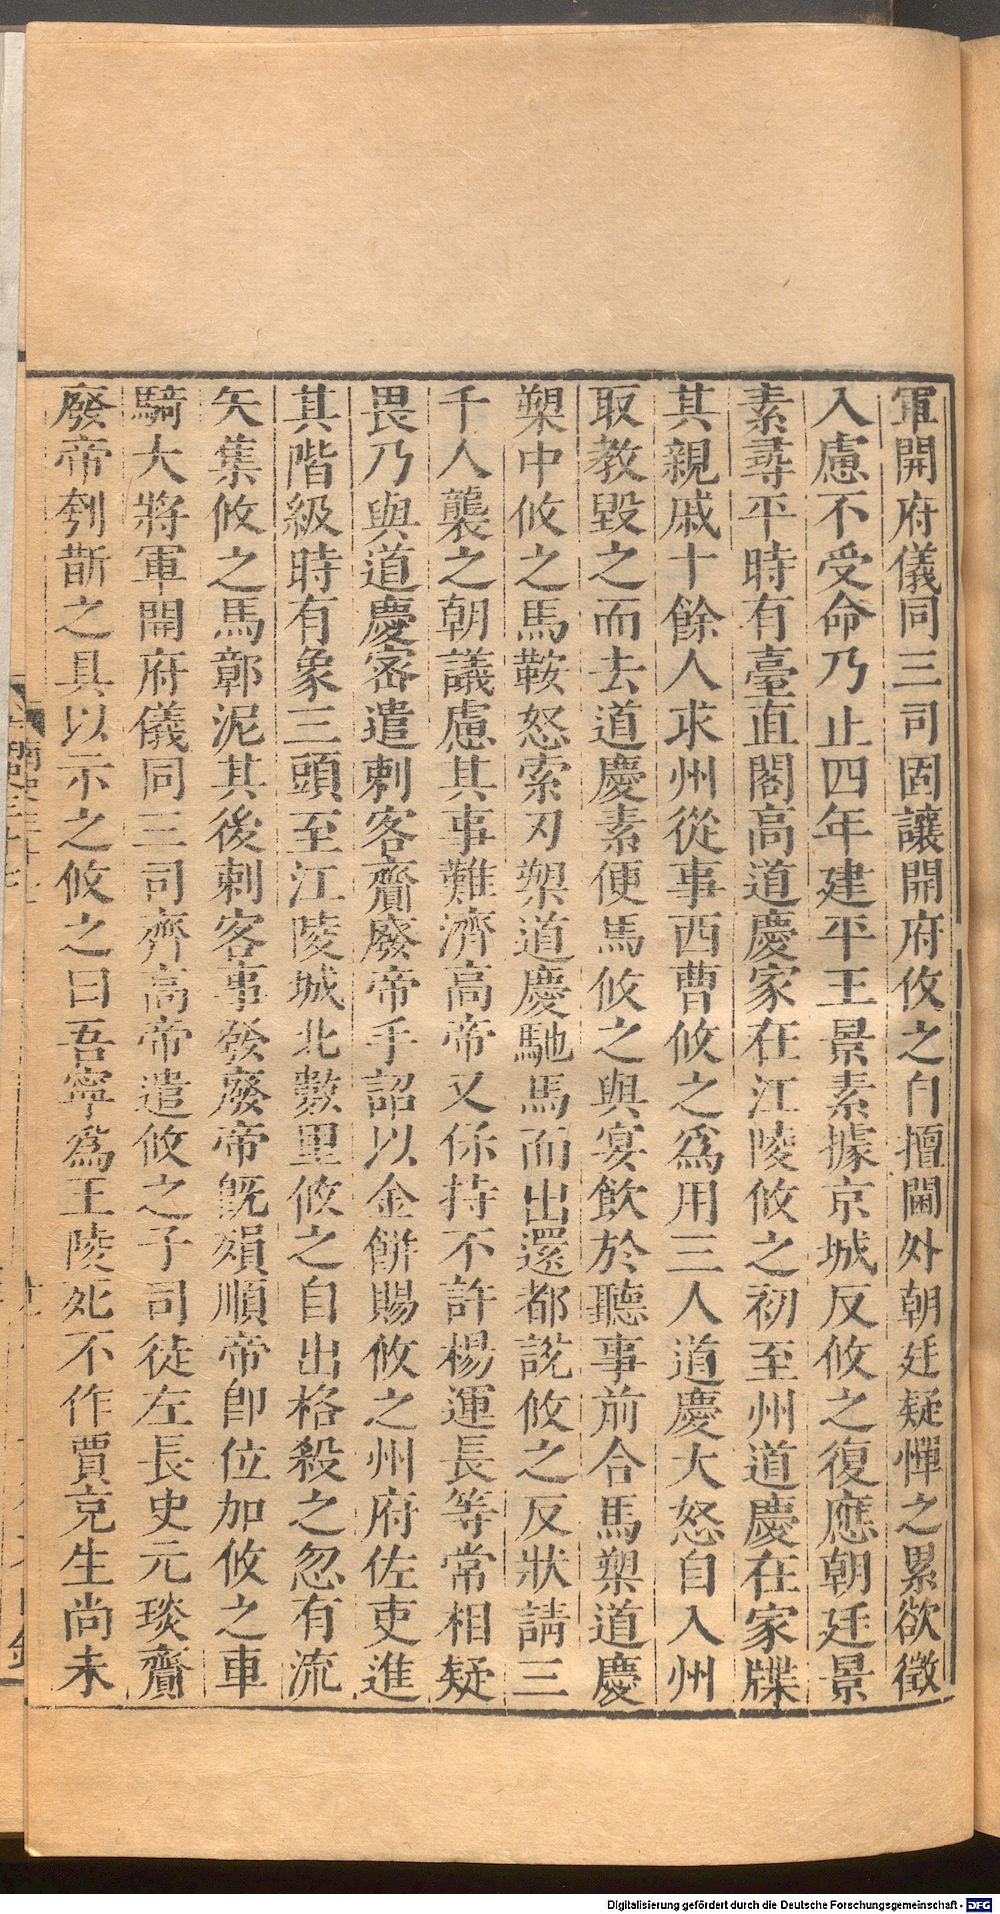 軍開府儀同三司固讓開府攸之自擅閫外朝廷疑憚之累欲徵
入慮不受命乃止四年建平王景素據京城反攸之復應朝廷景
素尋平時有臺直閣高道慶家在江陵攸之初至州道慶在家牒
其親戚十餘人求州從事西曹攸之爲用三人道慶大怒自入州
取教毀之而去道慶素便馬攸之與宴飲於聽事前合馬槊道慶
槊中攸之馬鞍怒索刃槊道慶馳馬而出還都說攸之反狀請三
千人襲之朝議慮其事難濟高帝又係持不許楊運長等常相疑
畏乃與道慶密遣刺客齎廢帝手詔以金餅賜攸之州府佐吏進
其階級時有象三頭至江陵城北數里攸之自出格殺之忽有流
矢集攸之馬鄣泥其後刺客事發廢帝旣殞順帝卽位加攸之車
騎大將軍開府儀同三司齊高帝遣攸之子司徒左長史元琰齎
廢帝刳斮之具以示之攸之曰吾寧爲王陵死不作賈充生尚未
Digitalisierung gefördert durch die Deutsche Forschungsgemeinschaft - DFG